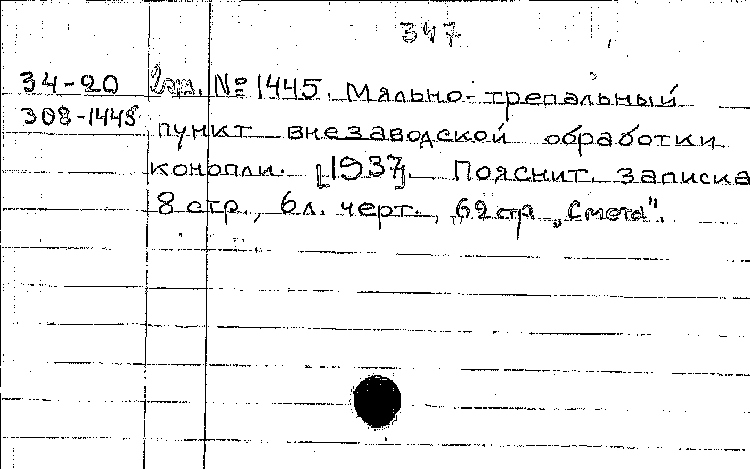 347
34-20 №1445. Мяльно-трепальный
308-1445 пункт внезаводской обработки
конопли. [1937]. Пояснит. записка
8 стр., 6л. черт., 62 стр „Смета".